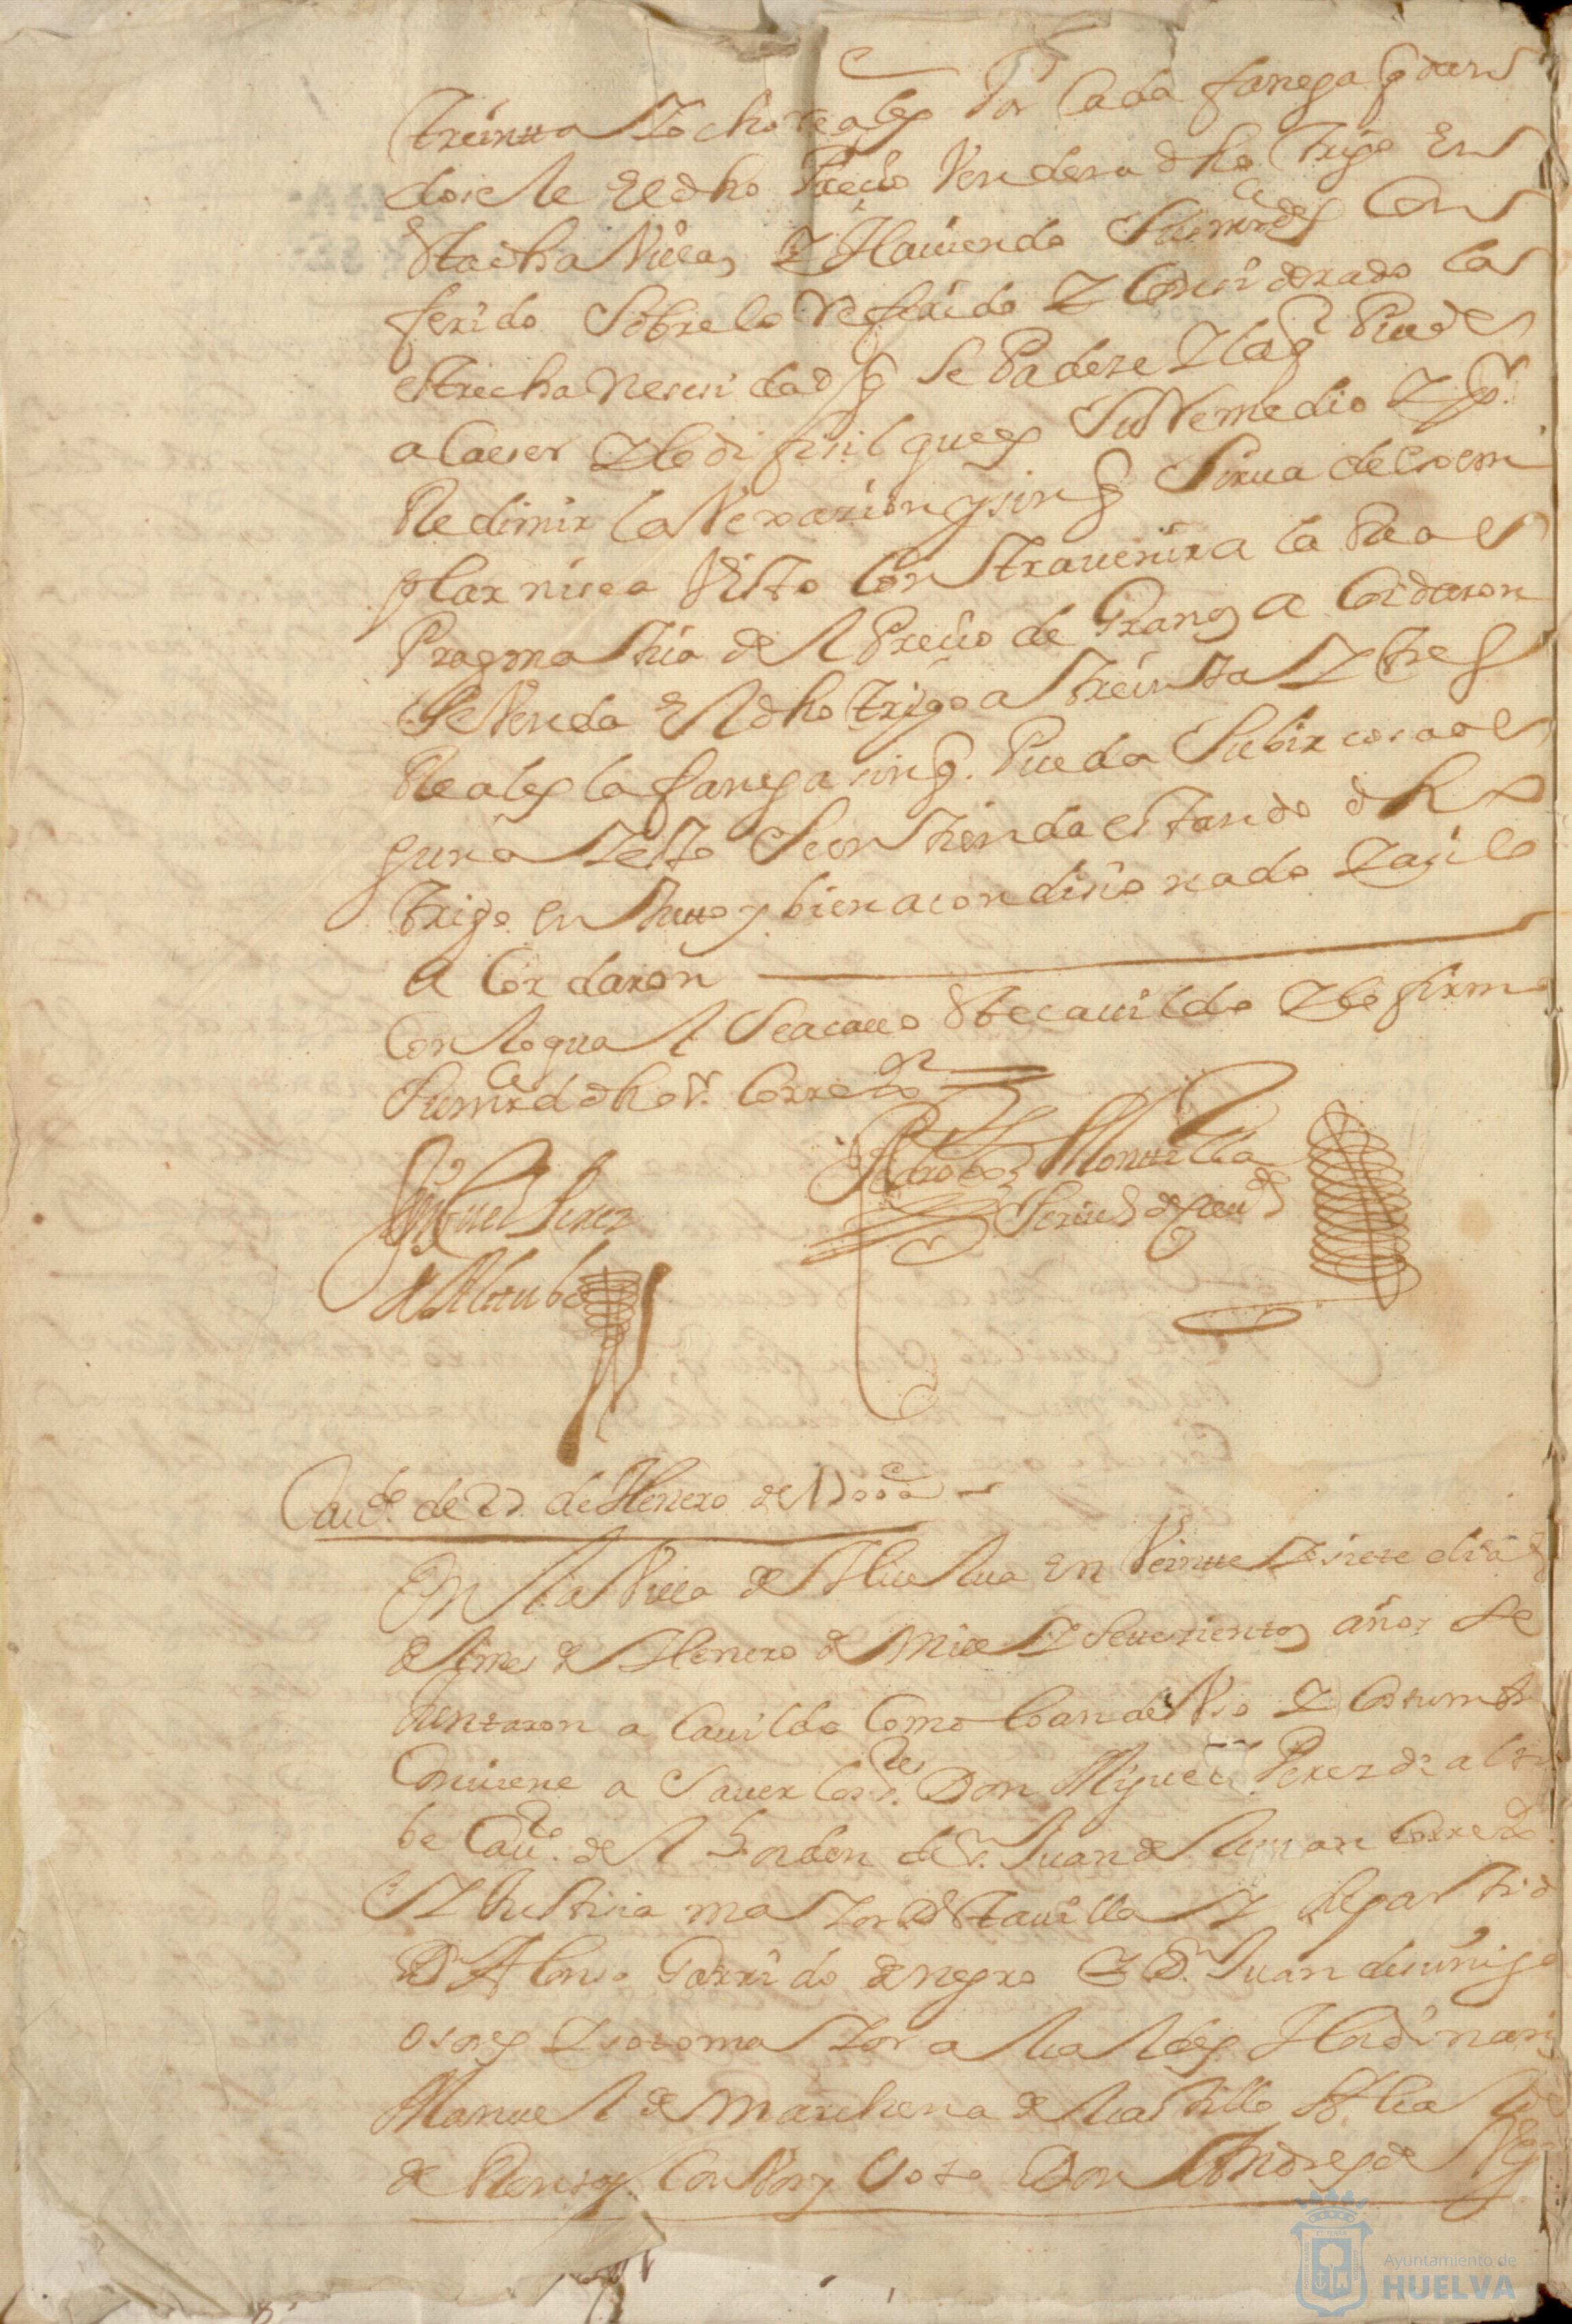 treintta y ocho reales Por Cada fanega q dan
dosele el dho Precio Vendera dho trigo En
esta dha Villa, y Haviendo Sus mrdes Con
ferido Sobre lo Referido y Considerado la
estrecha Necesidad q Se Padeze y la q Puede
acaeser y lo difisil que es Su Remedio y pa
Redimir la Vexazion y sin q Sirua de exem
plar ni sea Visto Contravenir a la Real
Pragmathica del Precio de Granos a Cordaron
Se Venda El dho trigo a treinta y tres
Reales la fanega sin q Pueda Subir cosa al
guna y esto Se entienda estando dho
trigo enxutto y bien acondisionado y asi lo
a Cordaron
Con lo qual Se acavo este cavildo y lo firmo
Su mrd dho Sr Corregor
Miguel Perez
de Altube
Pedro de Montilla
Scriuo de Cauo
Cavdo de 27 de Henero de 1700 a
En la Villa de Huelva en Veintte y siete dias
del mes de Henero de Mill y Settezientos años se
Juntaron a Cavildo Como lo an de Vso y Costumbre
Conviene a Saver Los Sres Don Miguel Perez de altu
be Cavro del horden de Sr Juan de Corregor
y Justicia mayor de esta villa y Su partido
Dn Alonso Garrido de negro y Dn Juan de suñiga
osorio y sotomayor alcaldes Hordinarios
Manuel de Marchena del Castillo Alcalde
de Con Vos y Voto Don Andres de Vega
Ayuntamiento de
HUELVA